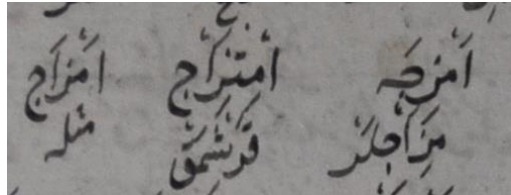 اَمْزِجَه اِمْتِزَاج اِمْزَاج
مِزَاجلَر قَرِشْمَق مثله